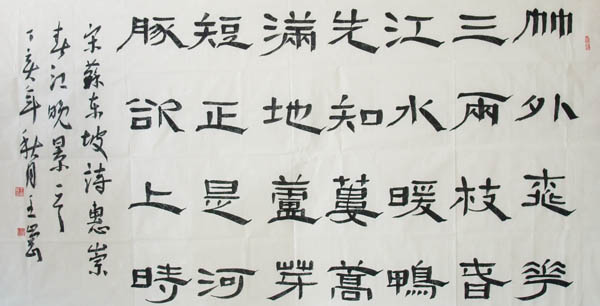 竹外桃花
三兩枝春
江水暖鴨
先知蔞蒿
滿地蘆芽
短正是河
豚欲上時
宋蘇东坡詩惠崇
春江晚景一首
丁亥年秋月